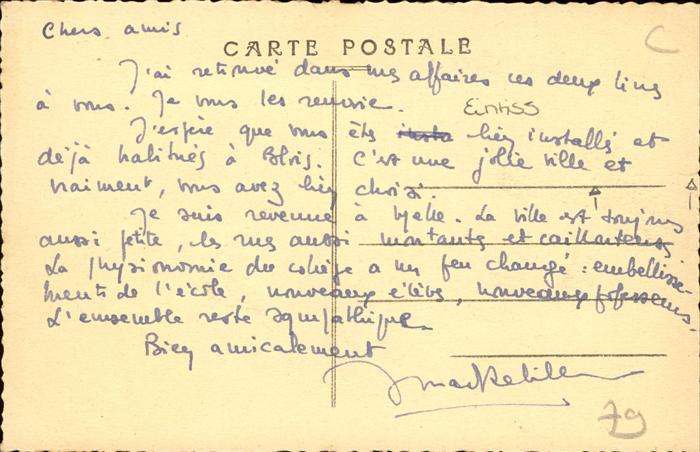 Chers amis
CARTE POSTALE
C
J'ai retrouvé dans mes affaires ces deux livres
à vous. Je vous les renvoie.
J'espère que vous êtes bien installés et
déjà habitués à Blois. C'est une jolie ville et
vraiment, vous avez bien choisi.
Je suis revenue à Melle. La ville est toujours
aussi petite, les rues aussi montantes et caillouteuses
La physionomie du collège a un peu changé : embellisse-
ments de l'école, nouveaux élèves, nouveaux professeurs.
L'ensemble reste sympathique.
Bien amicalement
79